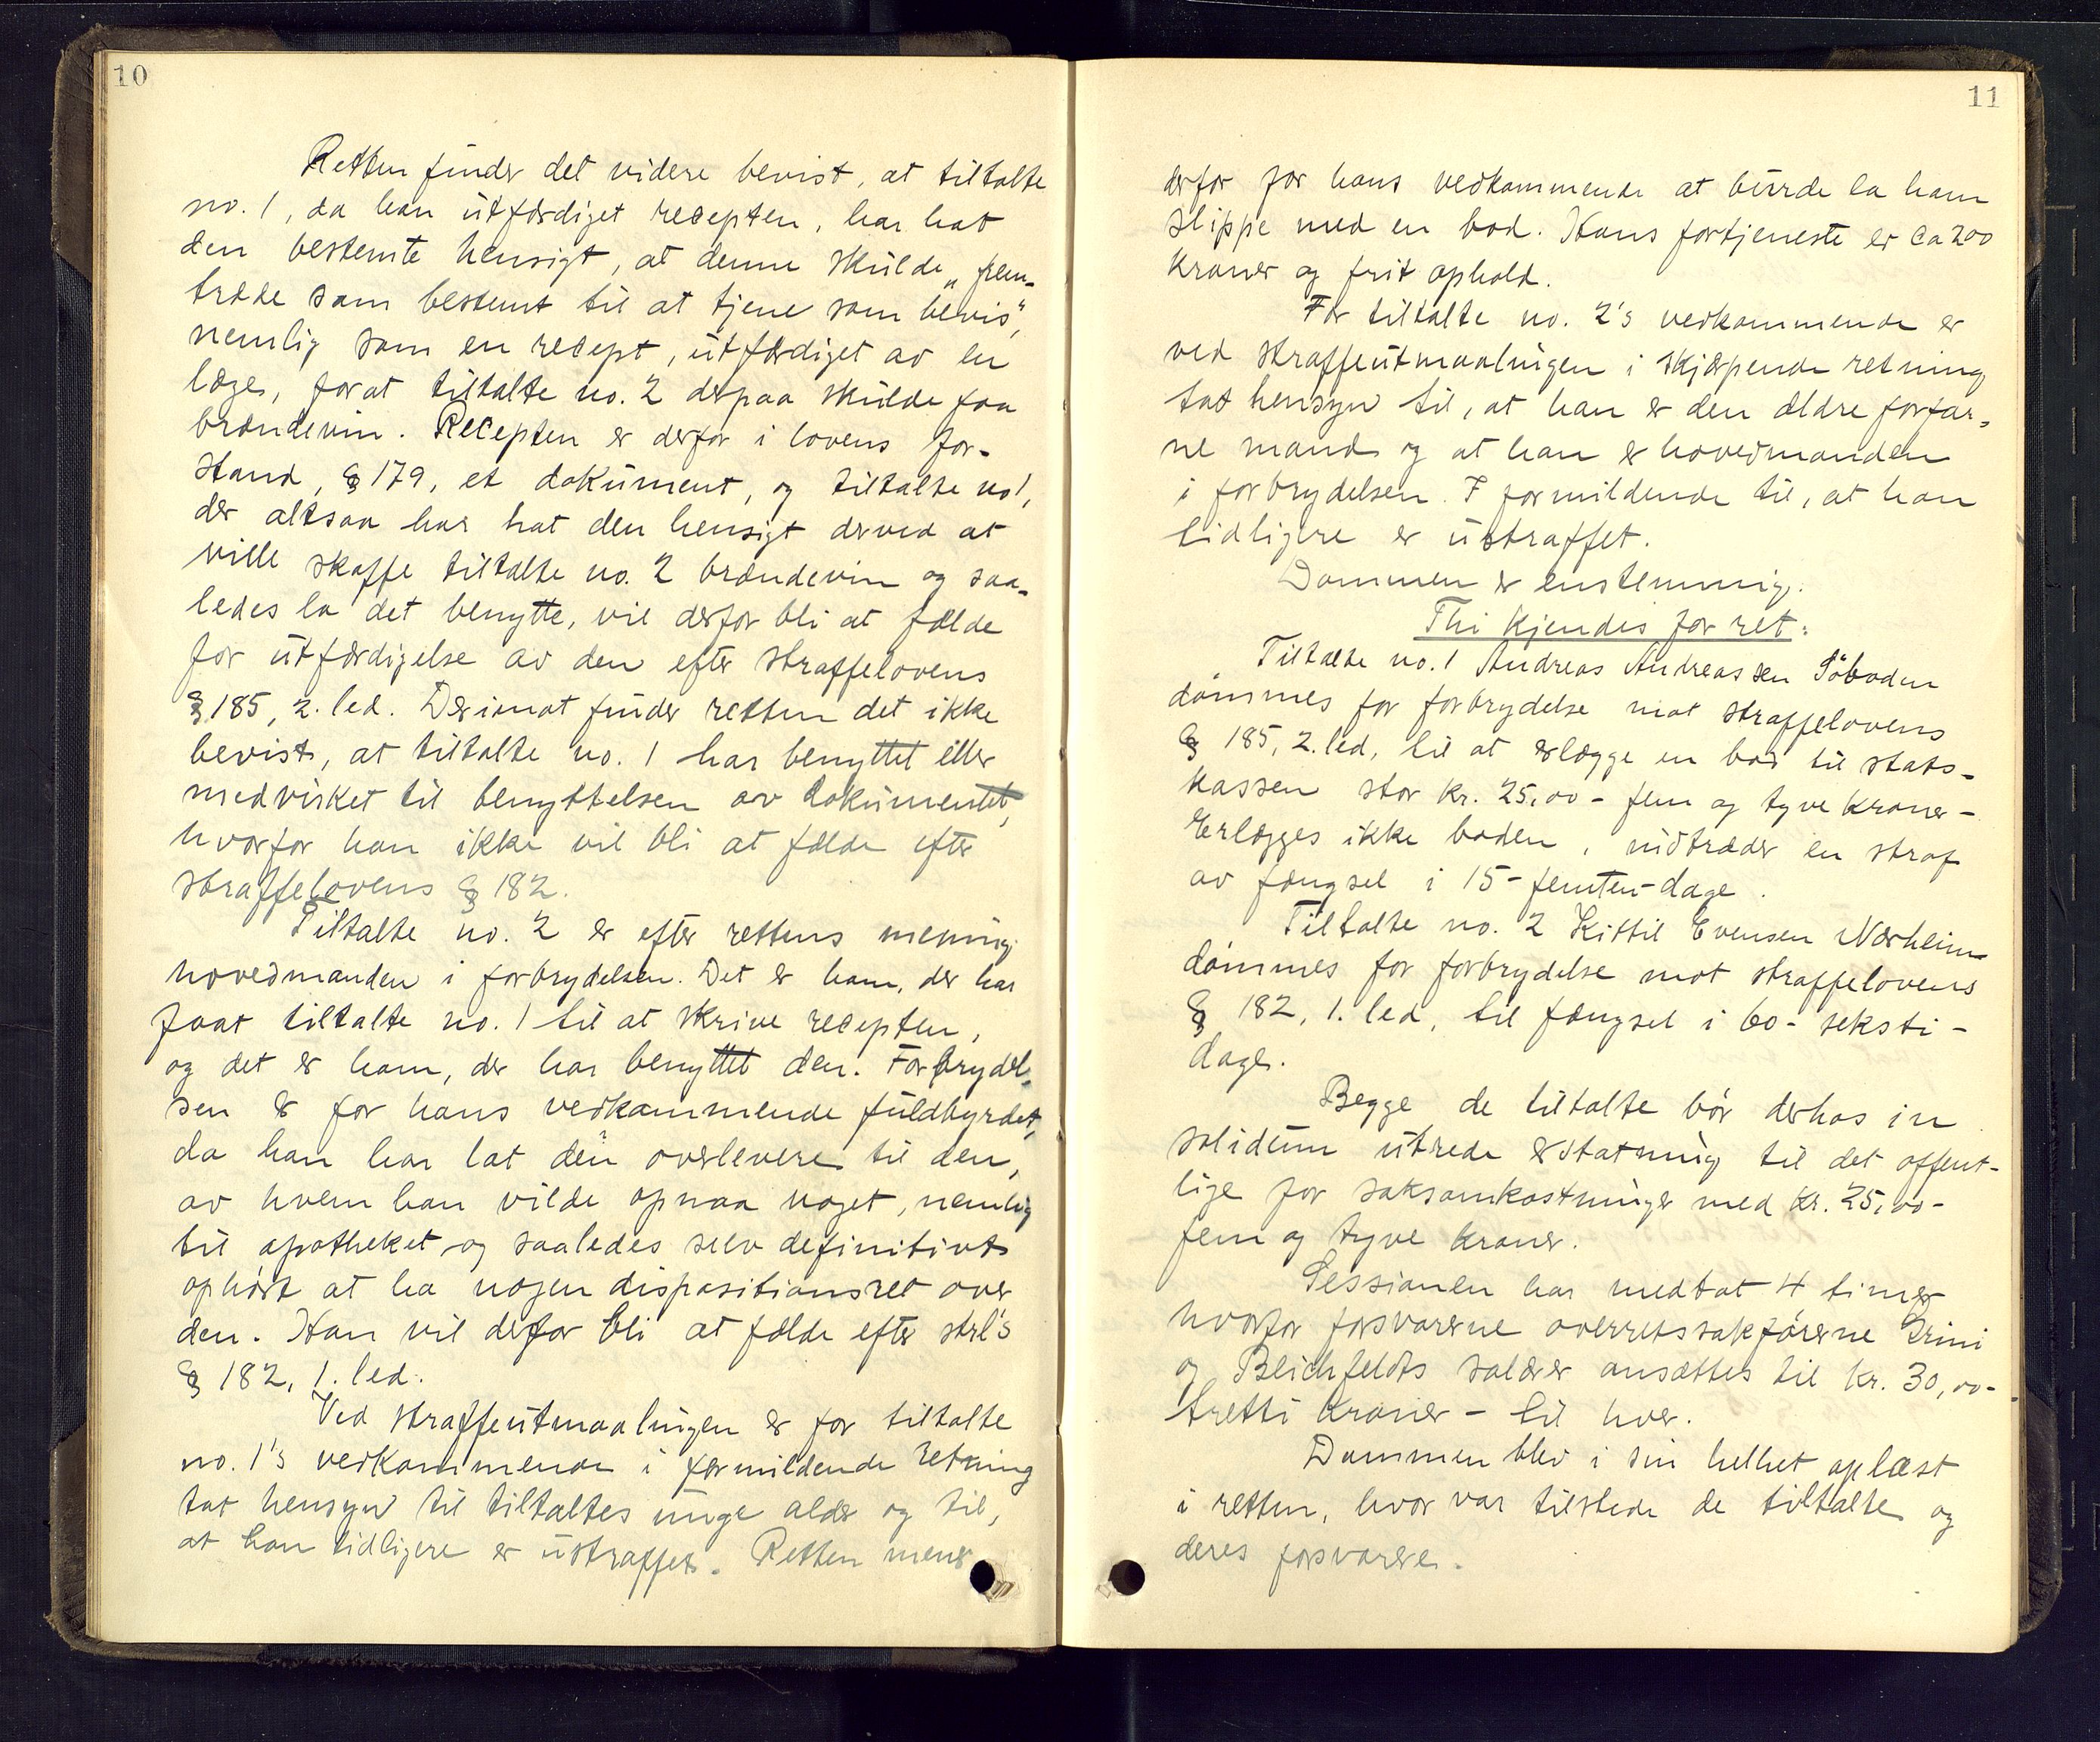 10
Retten finder det videre bevist, at tiltalte
no. 1, da han utfærdiget recepten, har hat
den bestemte hensigt, at denne skulde „frem-
træde som bestemt til at tjene som bevis",
nemlig som en recept, utfærdiget av en
læge, forat tiltalte no. 2 derpaa skulde faa
brændevin. Recepten er derfor i lovens for-
stand, § 179, et dokument, og tiltalte no 1,
der altsaa har hat den hensigt derved at
ville skaffe tiltalte no. 2 brændevin og saa-
ledes la det benytte, vil derfor bli at fælde
for utfærdigelse av den efter straffelovens
§ 185, 2. led. Derimot finder retten det ikke
bevist, at tiltalte no. 1 har benyttet eller
medvirket til benyttelsen av dokumentet,
hvorfor han ikke vil bli at fælde efter
straffelovens § 182.
Tiltalte no. 2 er efter rettens mening
hovedmanden i forbrydelsen. Det er ham, der har
faat tiltalte no. 1 til at skrive recepten,
og det er ham, der har benyttet den. Forbrydel-
sen er for hans vedkommende fuldbyrdet,
da han har lat den overlevere til den,
av hvem han vilde opnaa noget, nemlig
til apotheket og saaledes selv definitivt
ophørt at ha nogen dispositionsret over
den. Han vil derfor bli at fælde efter strl's
§ 182, 1. led.
Ved straffeutmaalingen er for tiltalte
no. 1's vedkommende i formildende retning
tat hensyn til tiltaltes unge alder og til,
at han tidligere er ustraffet. Retten mener
11
derfor for hans vedkommende at burde la ham
slippe med en bod. Hans fortjeneste er ca 200
kroner og frit ophold.
For tiltalte no. 2's vedkommende er
ved straffeutmaalingen i skjærpende retning
tat hensyn til, at han er den ældre forfar-
ne mand og at han er hovedmanden
i forbrydelsen. I formildende til, at han
tidligere er ustraffet.
Dommen er enstemmig.
Thi kjendes for ret:
Tiltalte no. 1 Andreas Andreassen Söboden
dömmes for forbrydelse mot straffelovens
§ 185, 2. led, til at erlægge en bod til stats-
kassen stor kr. 25,00 - fem og tyve kroner -
Erlægges ikke boden, indtræder en straf
av fængsel i 15 - femten - dage.
Tiltalte no. 2 Kittil Evensen Nærheim
dömmes for forbrydelse mot straffelovens
§ 182, 1. led, til fængsel i 60 - seksti -
dage.
Begge de tiltalte bör derhos in
solidum utrede erstatning til det offent-
lige for saksomkostninger med kr. 25,00 -
fem og tyve kroner.
Sessionen har medtat 4 timer
hvorfor forsvarerne overretssakförerne Grini
og Bleichfeldts salærer ansættes til kr. 30,00 -
tretti kroner - til hver.
Dommen blev i sin helhet oplæst
i retten, hvor var tilstede de tiltalte og
deres forsvarere.